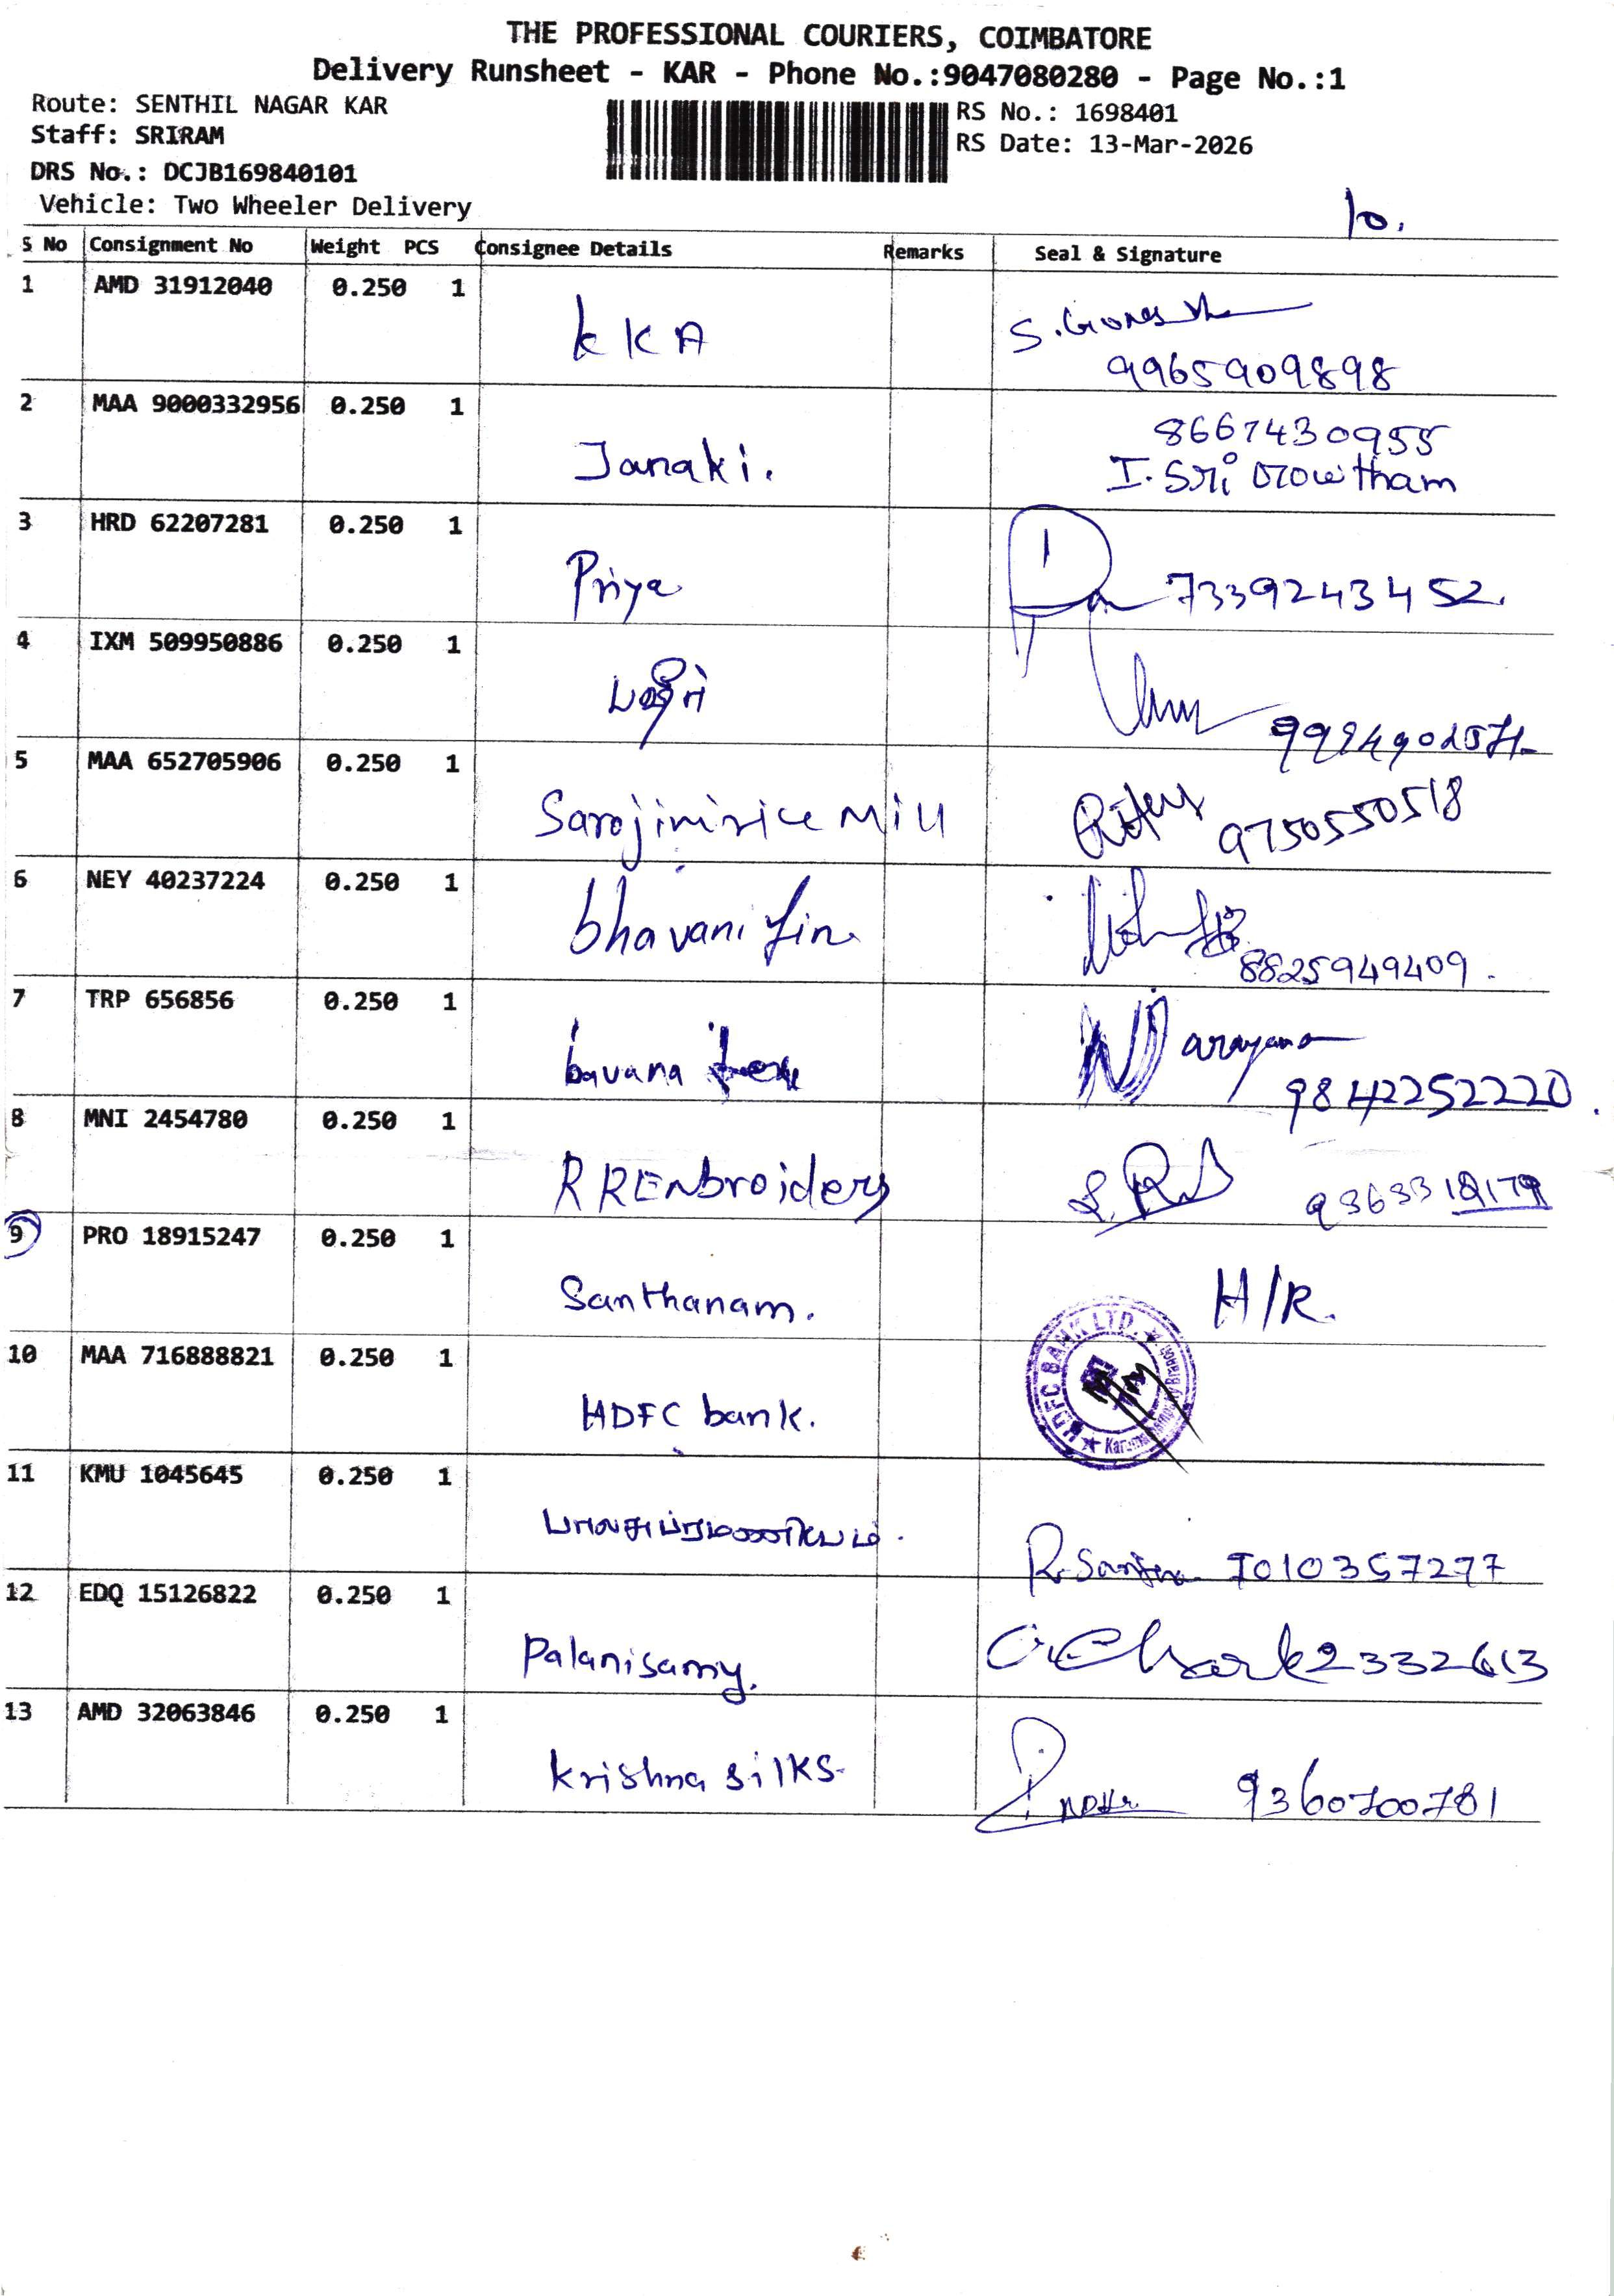 THE PROFESSIONAL COURIERS, COIMBATORE
Delivery Runsheet - KAR - Phone No.:9047080280 - Page No.:1
Route: SENTHIL NAGAR KAR
Staff: SRIRAM
DRS No.: DCJB169840101
Vehicle: Two Wheeler Delivery
RS No.: 1698401
RS Date: 13-Mar-2026
10.
S No Consignment No Weight PCS Consignee Details Remarks Seal & Signature
1 AMD 31912040 0.250 1
KKA S.Ganesh
9965909898
2 MAA 9000332956 0.250 1
Janaki. 8667430955
I. Sri Gowtham
3 HRD 62207281 0.250 1
Priya 7339243452.
4 IXM 509950886 0.250 1
5 MAA 652705906 0.250 1
Sarojini rice Mill 9750550518
6 NEY 40237224 0.250 1
bhavani fin
8825949409.
7 TRP 656856 0.250 1
bavana tex Narayana
9842252220.
8 MNI 2454780 0.250 1
RREnbroidery
9 PRO 18915247 0.250 1
Santhanam. H/R.
10 MAA 716888821 0.250 1
HDFC bank. HDFC BANK LTD.
11 KMU 1045645 0.250 1
பாலசுப்ரமணியம்.
12 EDQ 15126822 0.250 1
Palanisamy.
13 AMD 32063846 0.250 1
krishna silks 9360700781